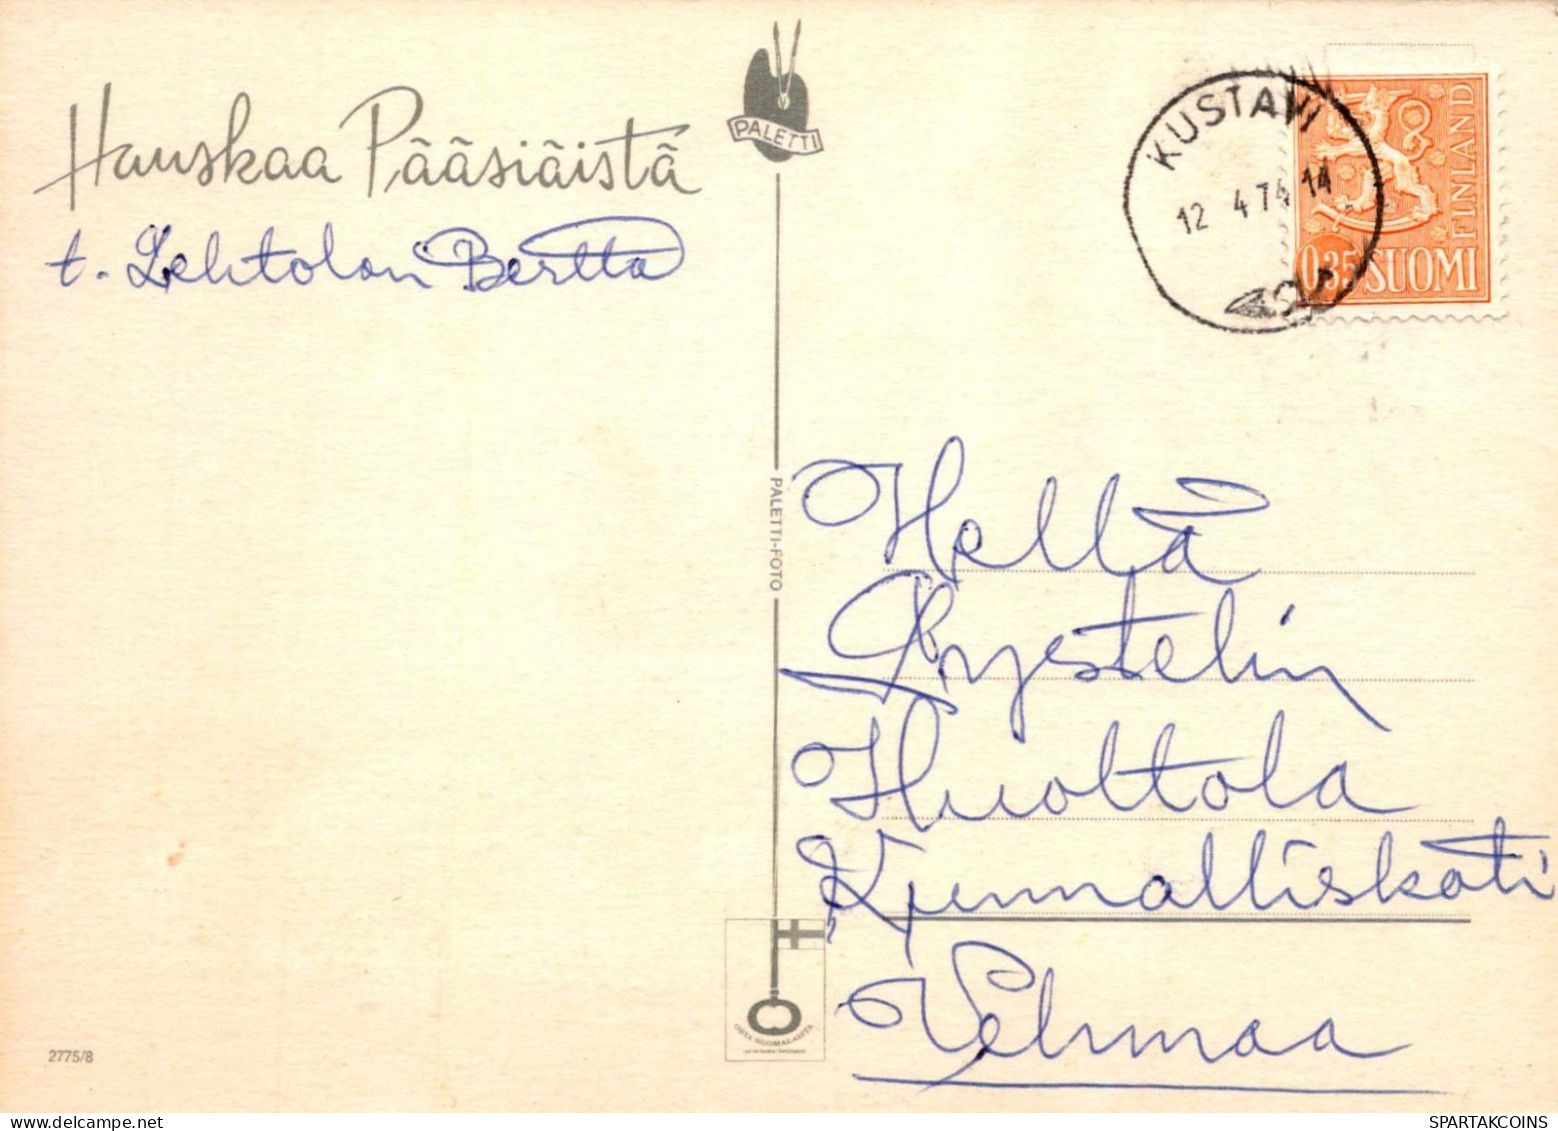 Hauskaa Pääsiäistä
t. Lehtolan Bertta
PALETTI
KUSTAVI
12 4 74 14
FINLAND
0,35 SUOMI
PALETTI-FOTO
Hellä
Rystelin
Huoltola
Kunnalliskoti
Vehmaa
OSTA SUOMALAISTA
2775/8
SPARTAKCOINS